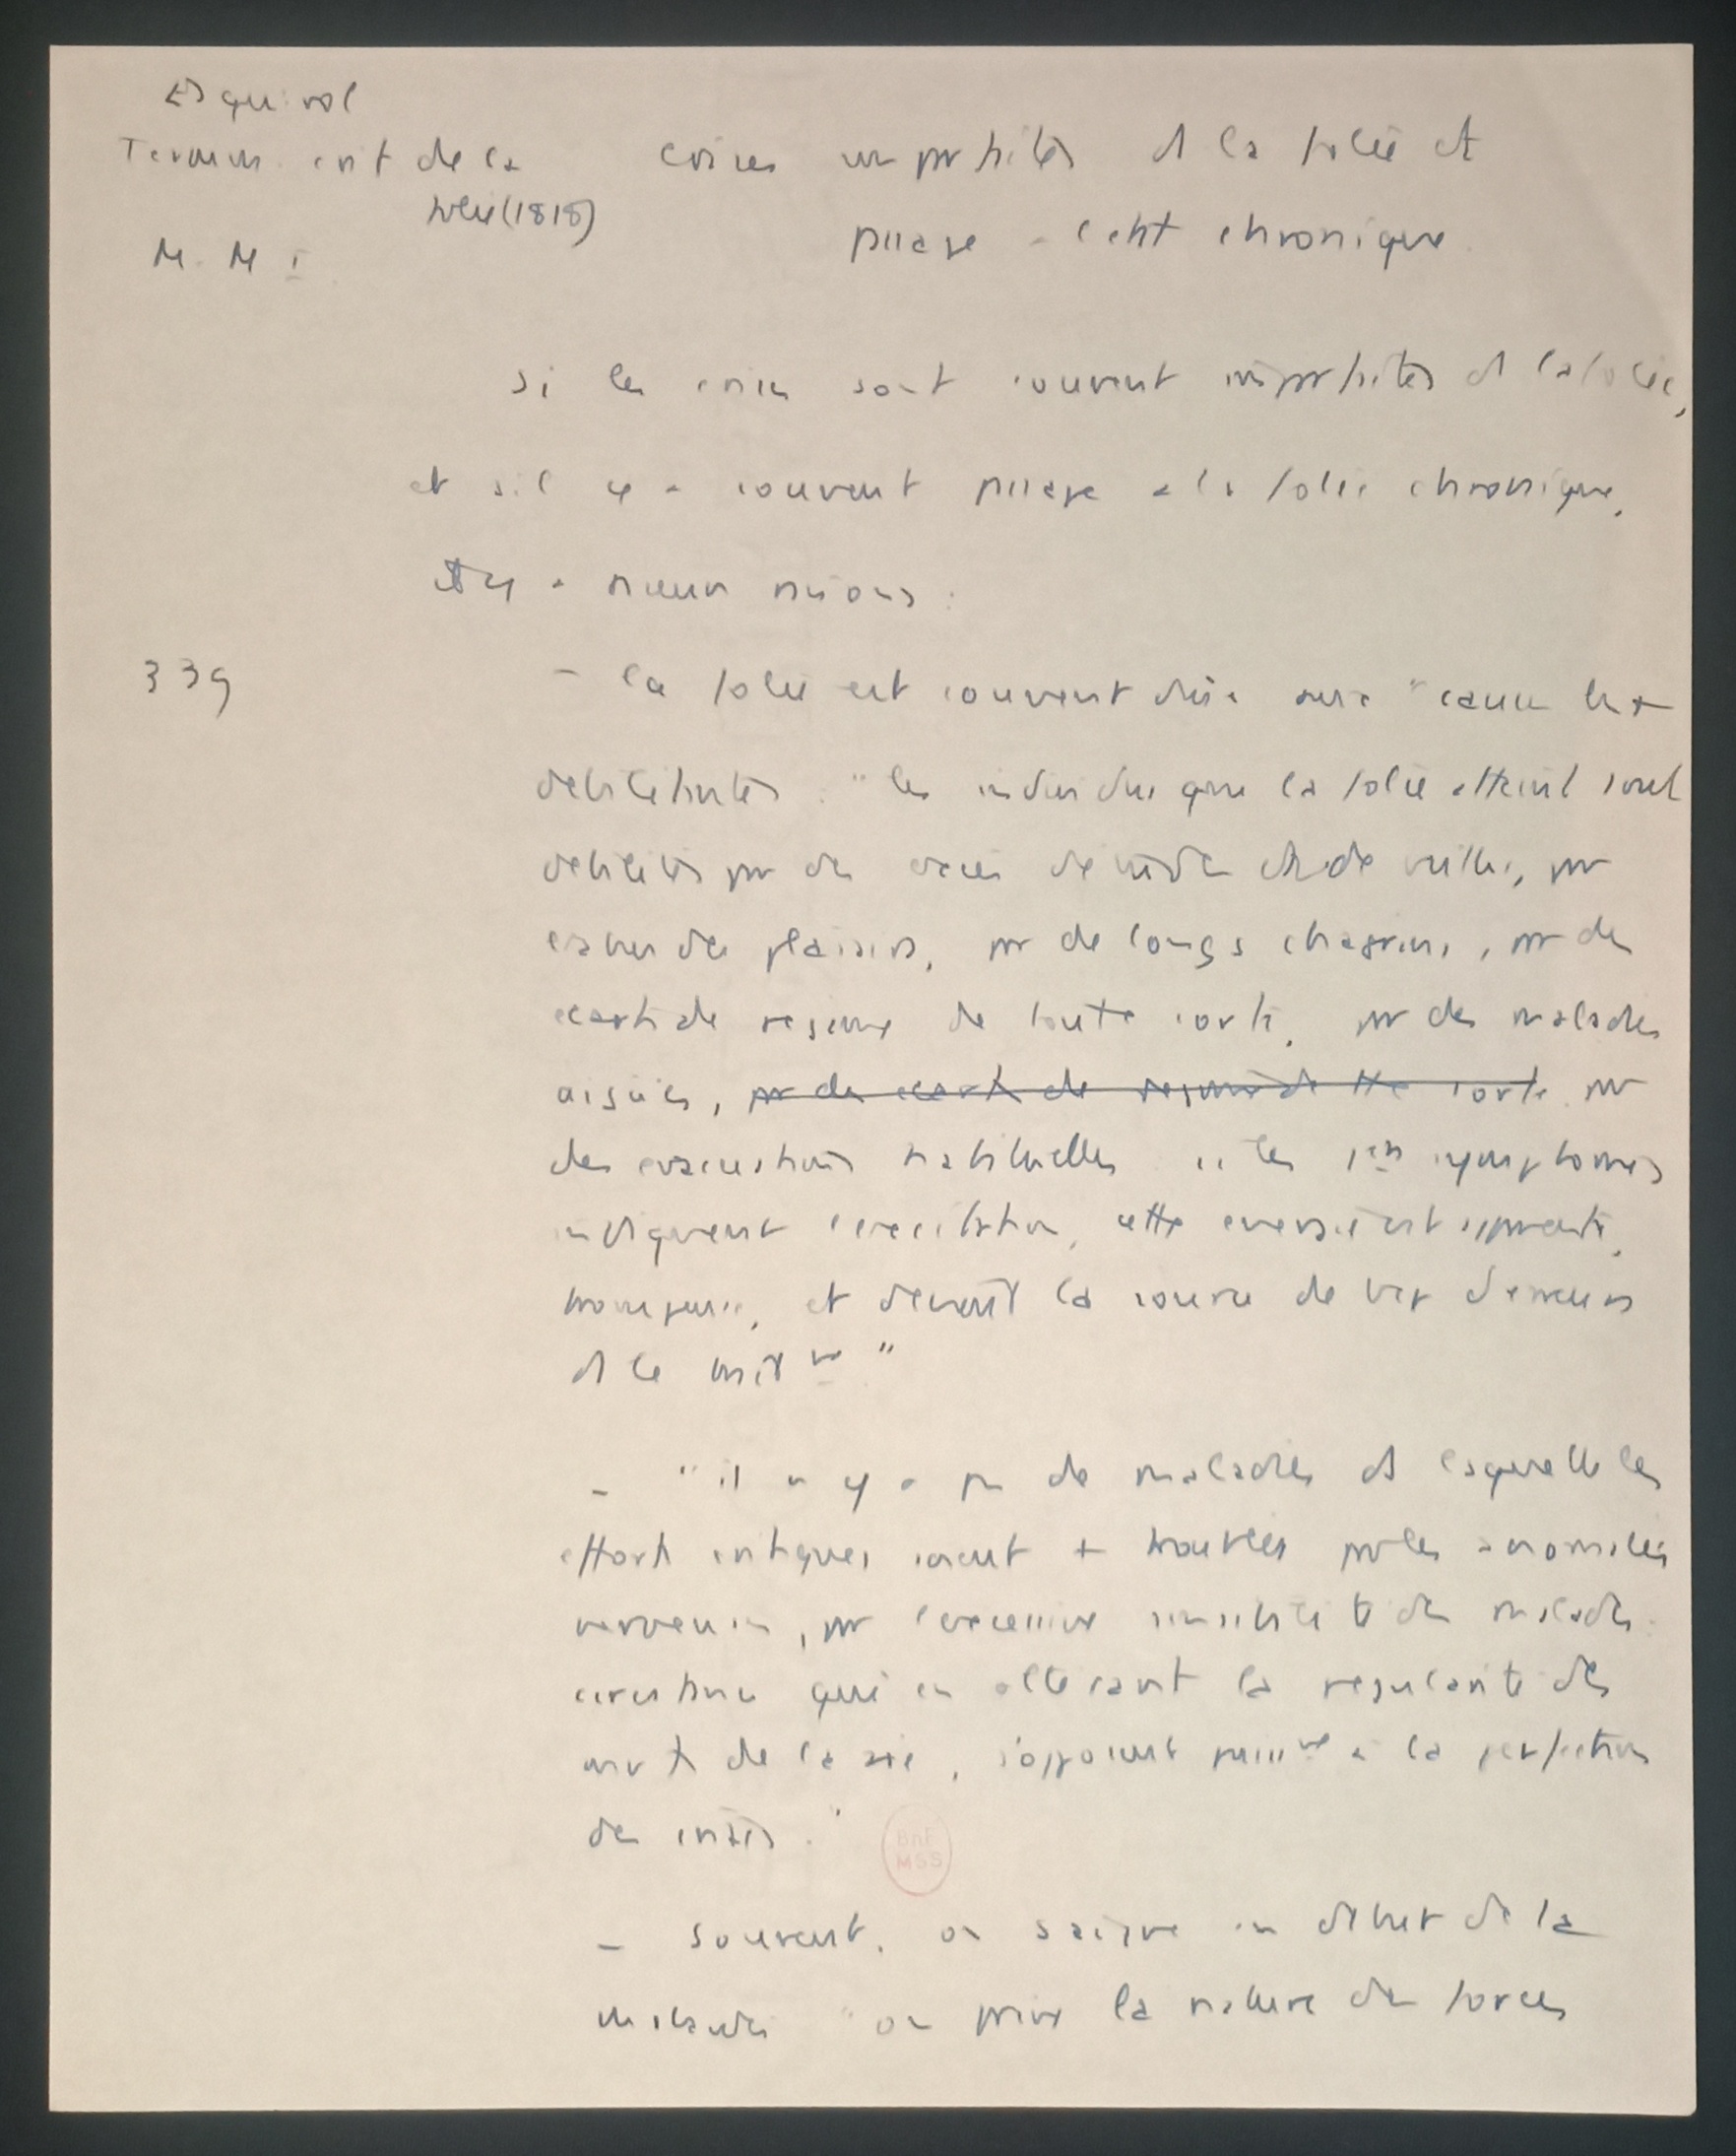 Esquirol
Termin. crit de la
folie (1818)
M. M I
crises imparfaites ds la folie et
passage a l'etat chronique.
si les crises sont souvent imparfaites ds la folie,
et s'il y a souvent passage a la folie chronique,
il y a plusieurs raisons :
339
- la folie est souvent due a "causes les +
debilitantes : "les individus que la folie atteint sont
debilités par des excès d'etude et de veilles, par
l'abus des plaisirs, par de longs chagrins, par des
ecarts de regime de toute sorte, par des maladies
aiguës, par des ecarts de regime de tte sorte par
des evacuations habituelles si les 1ers symptomes
indiquent l'excitation, cette energie est apparente,
trompeuse, et devient la source de bcp d'erreurs
ds le trait nt"
- "il n'y a pas de maladies ds laquelle les
efforts critiques soient + troublés par les anomalies
nerveuses, par l'excessive sensibilité des malades :
aberrations qui en altérant la regularité des
mvts de la vie, s'opposent puissmt à la perfection
des crises."
- Souvent, on saigne au debut de la
maladie "on prive la nature des forces
BnF
MSS